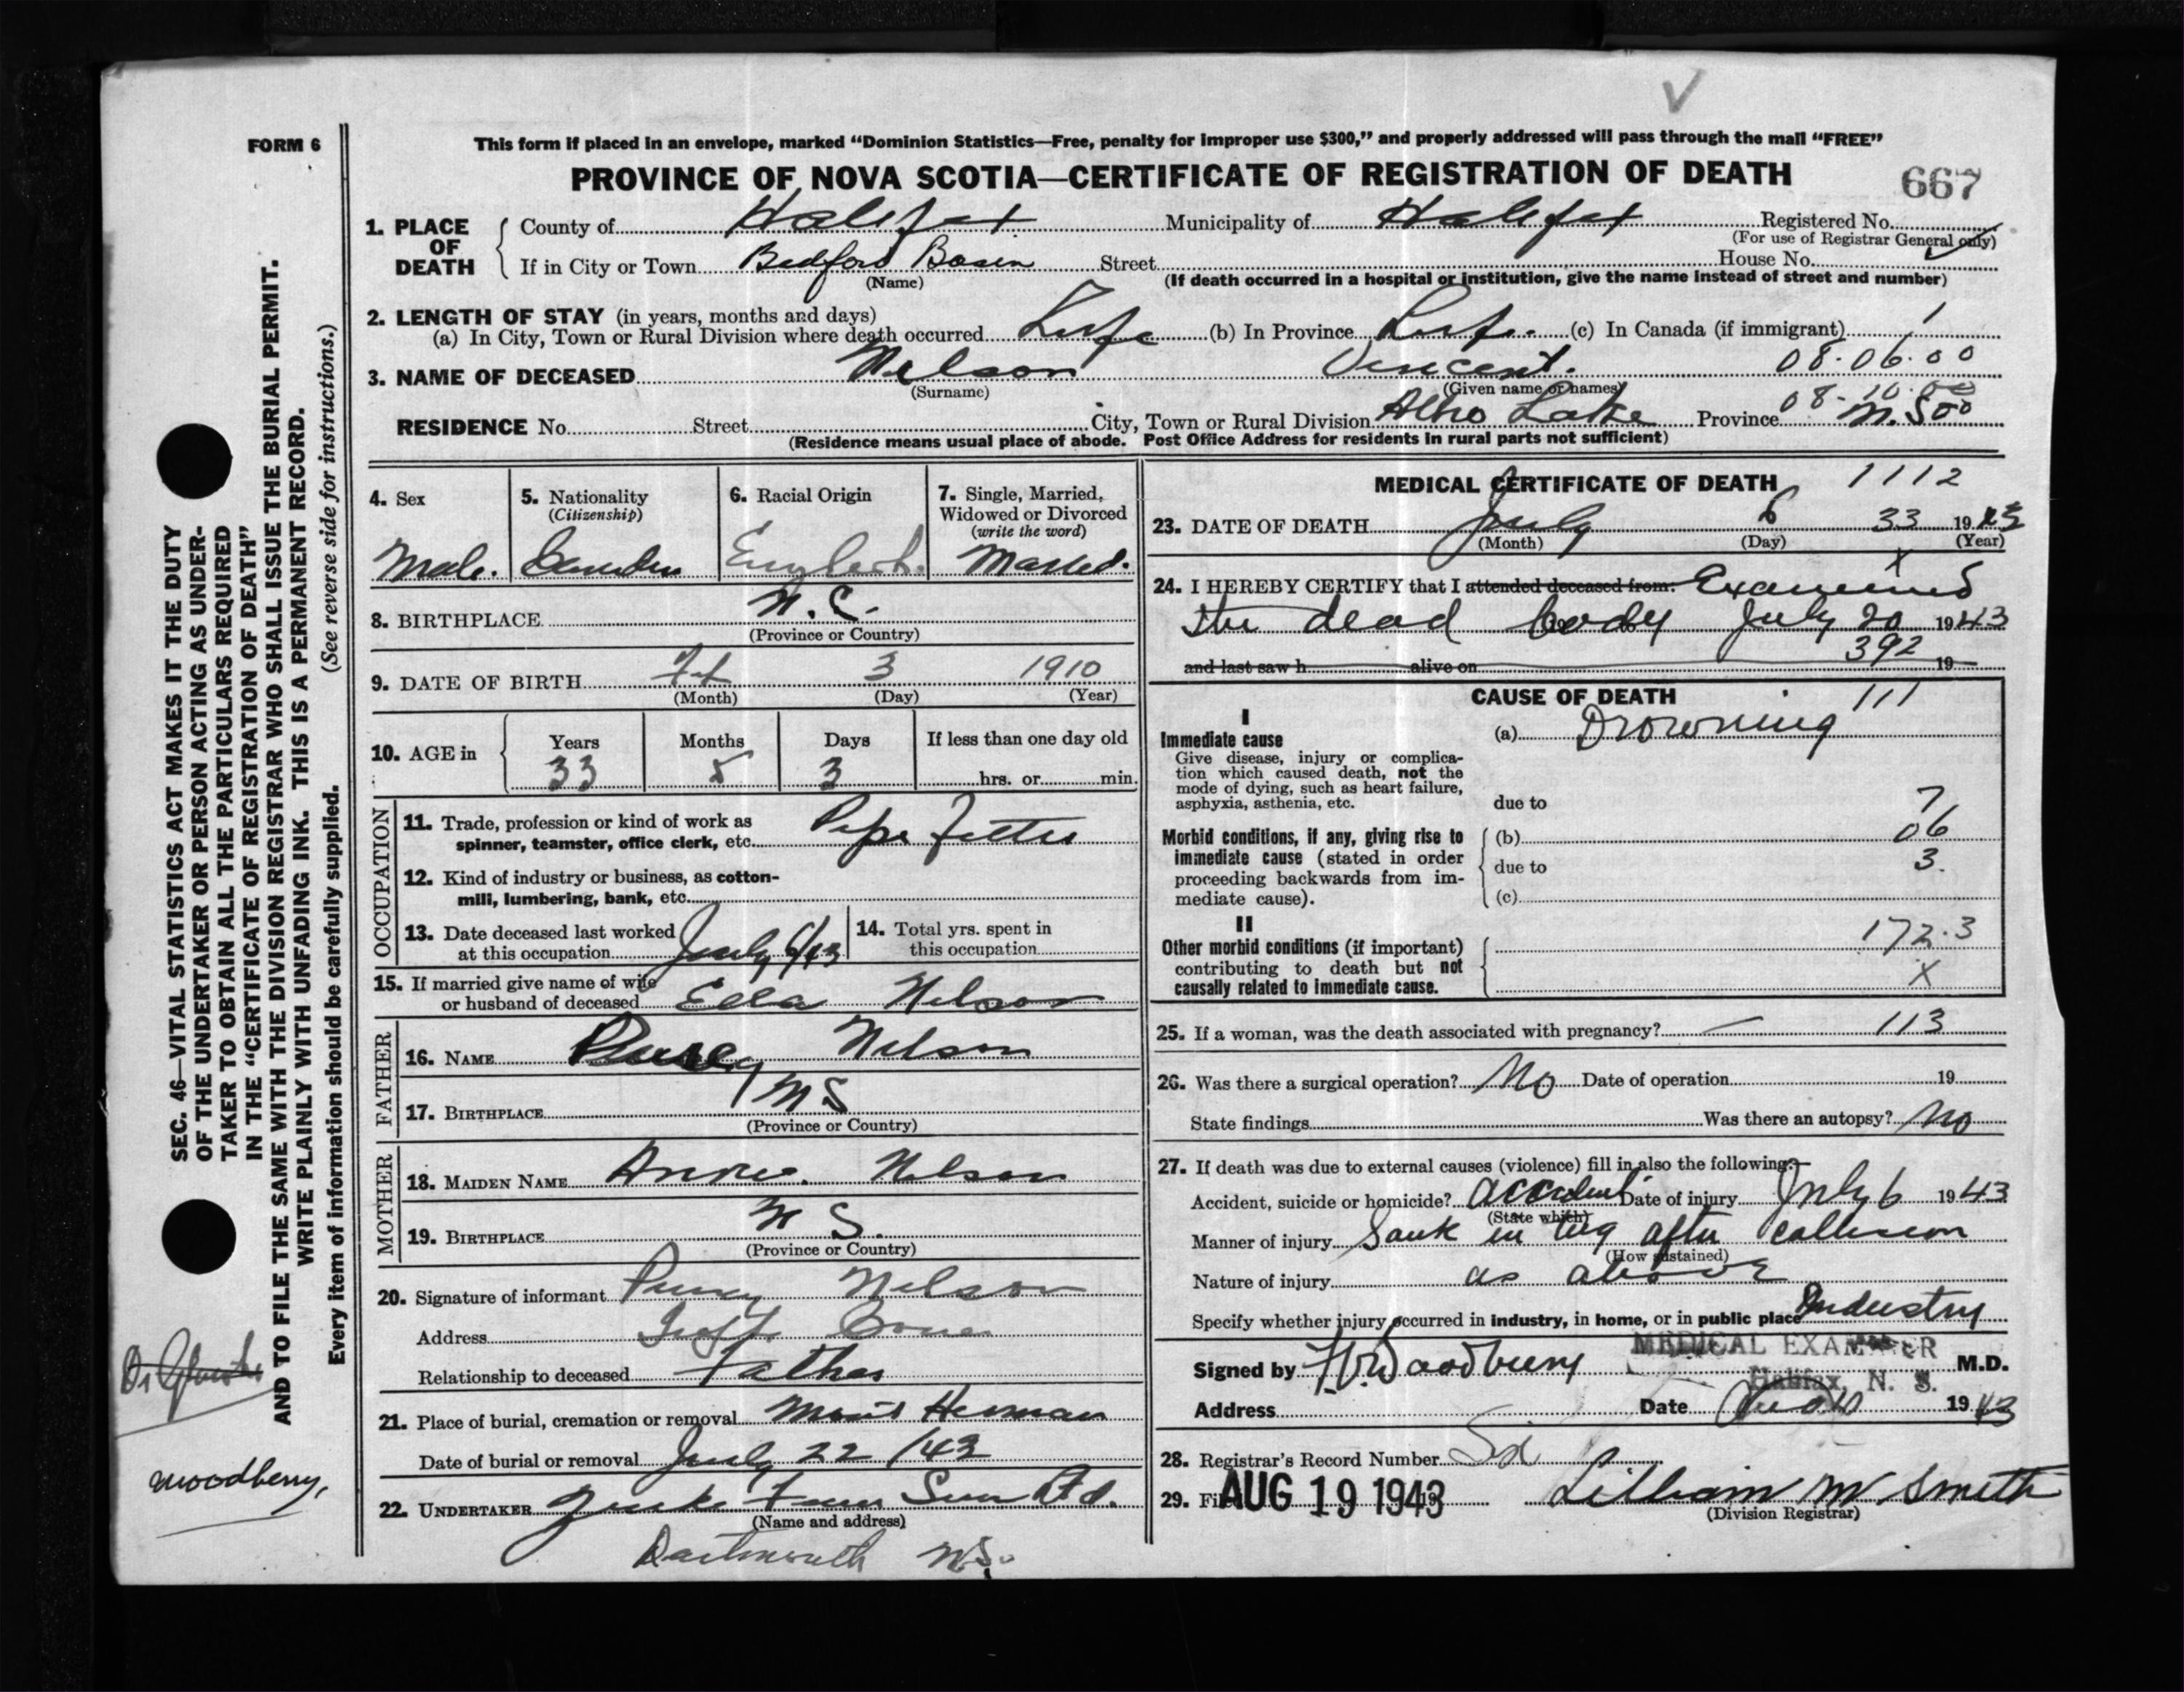 FORM 6
This form if placed in an envelope, marked “Dominion Statistics—Free, penalty for improper use $300,” and properly addressed will pass through the mail “FREE”
PROVINCE OF NOVA SCOTIA—CERTIFICATE OF REGISTRATION OF DEATH
667
1. PLACE OF DEATH
County of Halifax Municipality of Halifax Registered No.
(For use of Registrar General only)
If in City or Town Bedford Basin Street House No.
(Name) (If death occurred in a hospital or institution, give the name instead of street and number)
2. LENGTH OF STAY (in years, months and days)
(a) In City, Town or Rural Division where death occurred Life (b) In Province Life (c) In Canada (if immigrant) 1
08.06.00
3. NAME OF DECEASED Nelson Vincent.
(Surname) (Given name or names)
08-10.00
RESIDENCE No. Street City, Town or Rural Division Albro Lake Province N.S.
(Residence means usual place of abode. Post Office Address for residents in rural parts not sufficient)
4. Sex
Male.
5. Nationality
(Citizenship)
6. Racial Origin
English.
7. Single, Married, Widowed or Divorced
(write the word)
Married.
8. BIRTHPLACE
(Province or Country)
9. DATE OF BIRTH 3 1910
(Month) (Day) (Year)
10. AGE in
Years Months Days If less than one day old
33 5 3 hrs. or min.
OCCUPATION
11. Trade, profession or kind of work as
spinner, teamster, office clerk, etc. Pipe Fitter
12. Kind of industry or business, as cotton-
mill, lumbering, bank, etc.
13. Date deceased last worked
at this occupation July 6/43
14. Total yrs. spent in
this occupation
15. If married give name of wife
or husband of deceased Nelson
FATHER
16. NAME Nelson
17. BIRTHPLACE NS
(Province or Country)
MOTHER
18. MAIDEN NAME Annie. Nelson
19. BIRTHPLACE N S.
(Province or Country)
20. Signature of informant Nelson
Address
Relationship to deceased Father
21. Place of burial, cremation or removal Herman
Date of burial or removal July 22/43
22. UNDERTAKER Ltd.
(Name and address)
Dartmouth N.S.
MEDICAL CERTIFICATE OF DEATH 1112
23. DATE OF DEATH July 6 33 1943
(Month) (Day) (Year)
X
24. I HEREBY CERTIFY that I attended deceased from: Examined
the dead body July 20 1943
392
and last saw h alive on 19
CAUSE OF DEATH 111
I
Immediate cause
Give disease, injury or complica-
tion which caused death, not the
mode of dying, such as heart failure,
asphyxia, asthenia, etc.
(a) Drowning
due to
7
Morbid conditions, if any, giving rise to
immediate cause (stated in order
proceeding backwards from im-
mediate cause).
(b) 06
due to 3.
(c)
II
Other morbid conditions (if important)
contributing to death but not
causally related to immediate cause.
172.3
X
25. If a woman, was the death associated with pregnancy? — 113
26. Was there a surgical operation? No Date of operation 19
State findings Was there an autopsy? No
27. If death was due to external causes (violence) fill in also the following:—
Accident, suicide or homicide? accident Date of injury July 6 1943
(State which)
Manner of injury Sank in tug after collision
(How sustained)
Nature of injury as above
Specify whether injury occurred in industry, in home, or in public place Industry
MEDICAL EXAMINER
Signed by Woodbury M.D.
Halifax, N. S.
Address Date 1943
28. Registrar's Record Number
29. AUG 19 1943 Lillian M Smith
(Division Registrar)
SEC. 46—VITAL STATISTICS ACT MAKES IT THE DUTY
OF THE UNDERTAKER OR PERSON ACTING AS UNDER-
TAKER TO OBTAIN ALL THE PARTICULARS REQUIRED
IN THE “CERTIFICATE OF REGISTRATION OF DEATH”
AND TO FILE THE SAME WITH THE DIVISION REGISTRAR WHO SHALL ISSUE THE BURIAL PERMIT.
WRITE PLAINLY WITH UNFADING INK. THIS IS A PERMANENT RECORD.
Every item of information should be carefully supplied. (See reverse side for instructions.)
Woodberry,